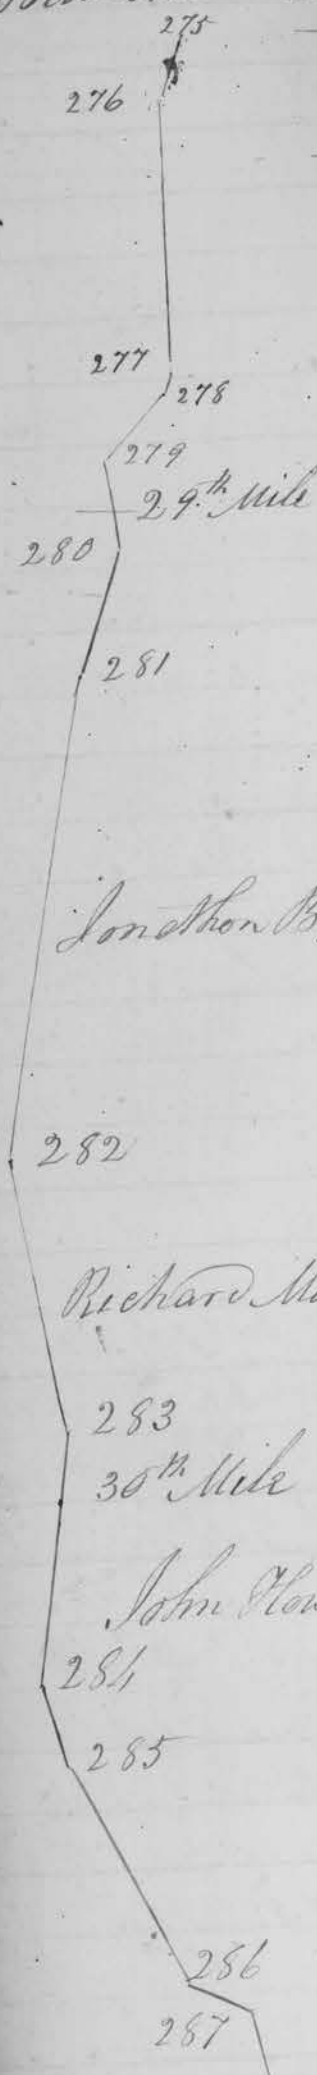 275
276
277
278
279
29.th Mile
280
281
Jonathon B
282
Richard
283
30th Mile
John How
284
285
286
287